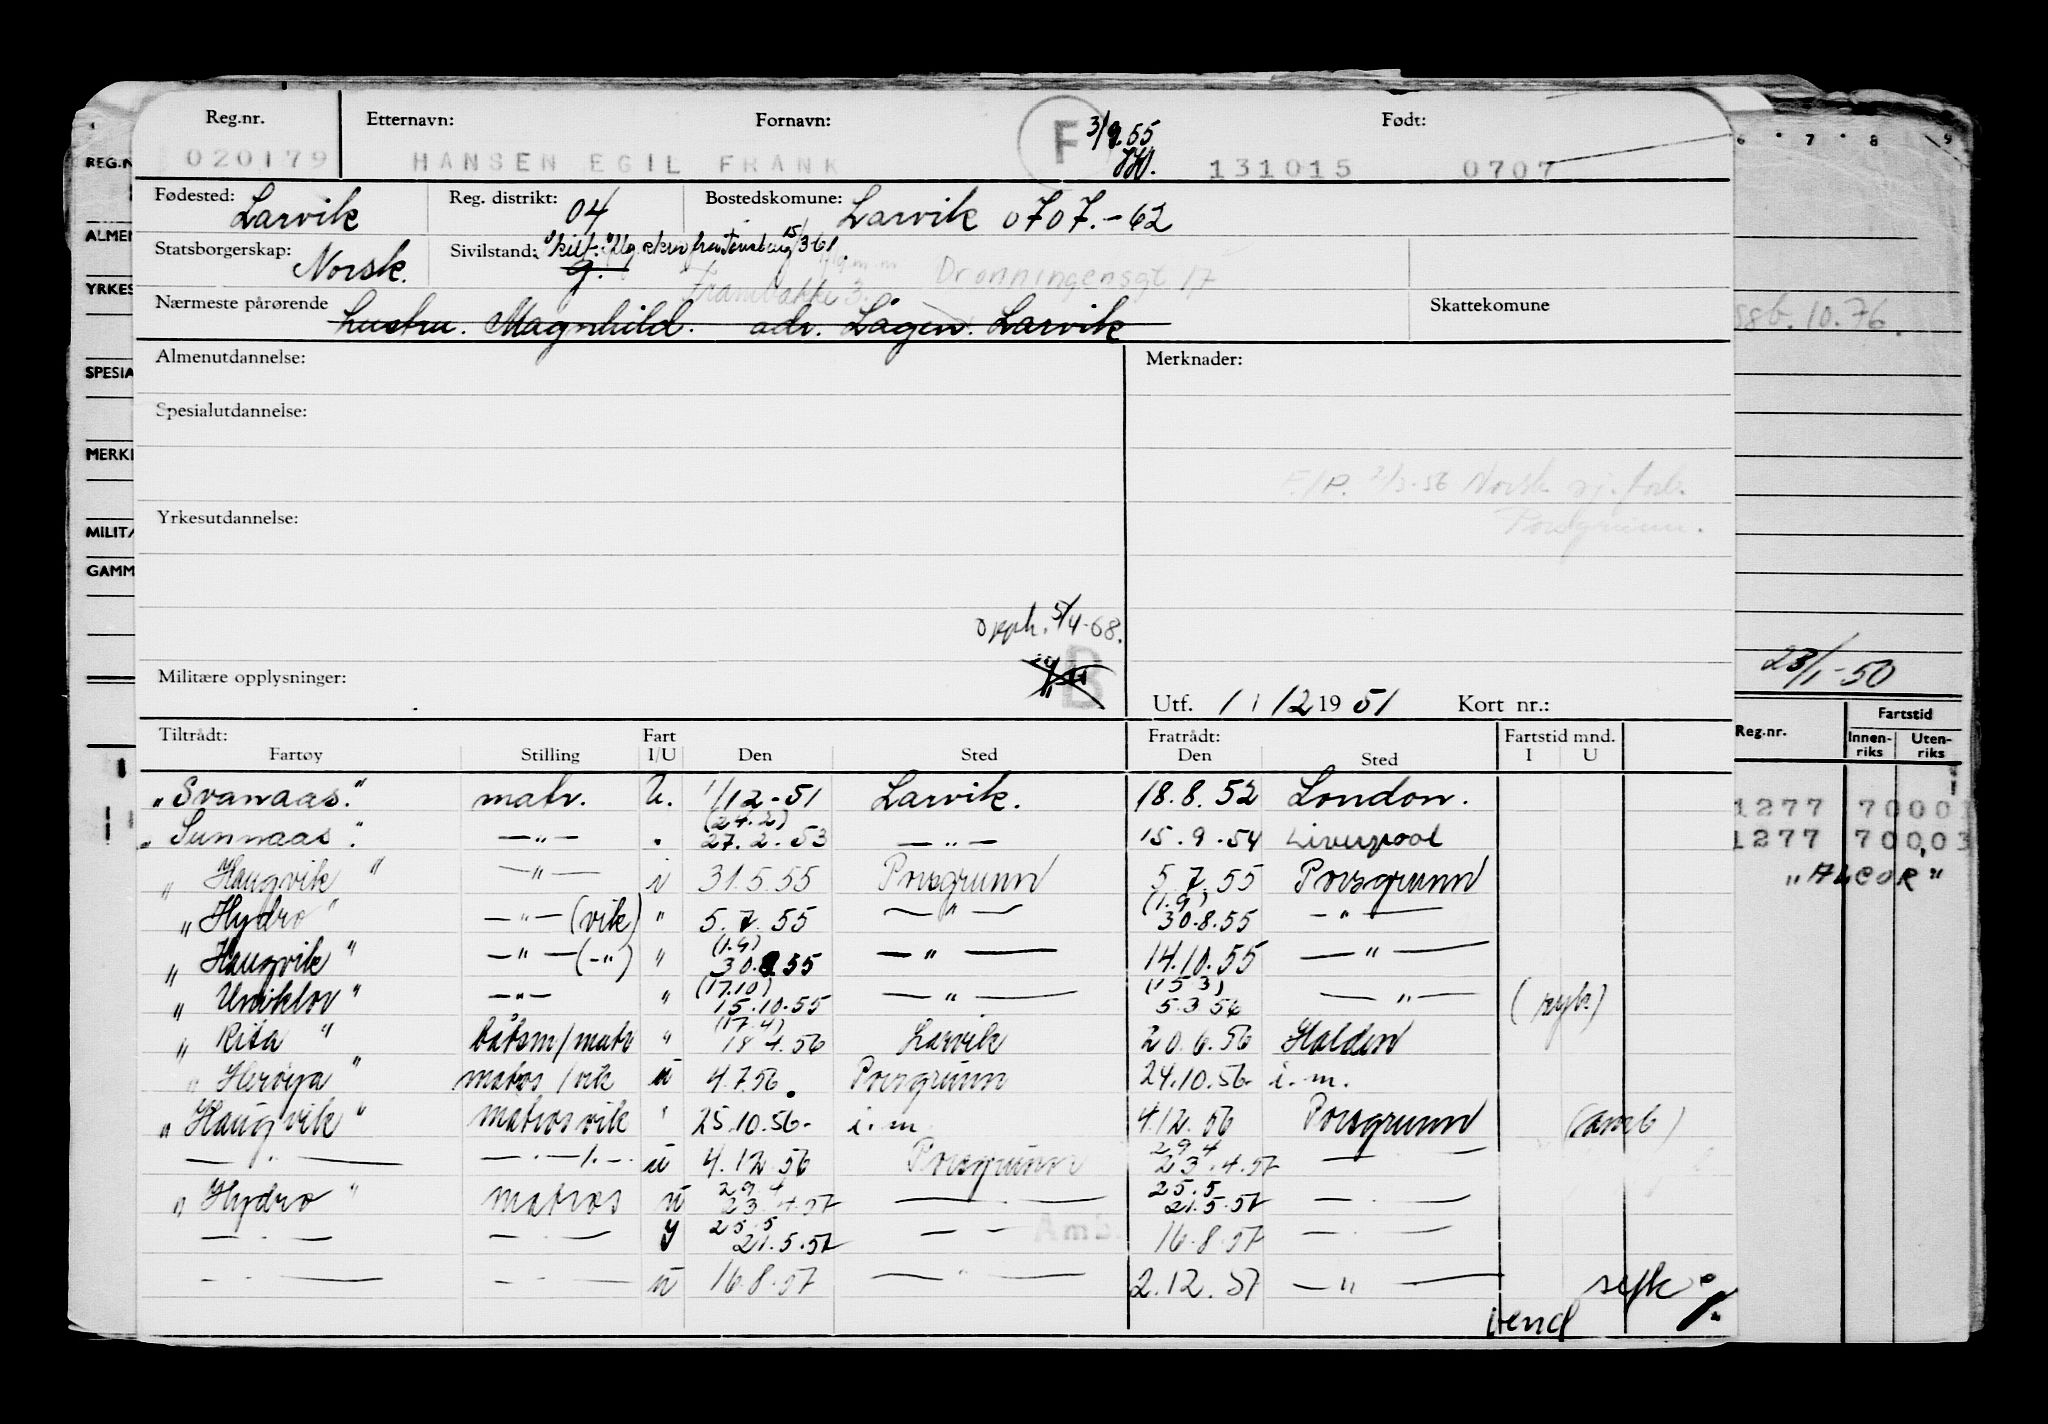 Reg.nr. Etternavn: Fornavn: F 3/9.55 Født:
020179 HANSEN EGIL FRANK 131015 0707
Fødested: Larvik Reg. distrikt: 04 Bostedskomune: Larvik 0707.-62
Statsborgerskap: Norsk. Sivilstand: g. 15/3 61. Dronningensgt 17
Frambakke 3.
Nærmeste pårørende hustru. Magnhild. adr. Lågen. Larvik Skattekomune
Almenutdannelse: Merknader:
Spesialutdannelse:
F./P. Norsk sj. forb.
Yrkesutdannelse: Porsgrunn.
opph. 5/4-68.
B
Militære opplysninger: Utf. 1 / 12 19 51 Kort nr.:
Tiltrådt: Fart Fratrådt: Fartstid mnd.
Fartøy Stilling I/U Den Sted Den Sted I U
"Svanaas." matr. U. 1/12-51 Larvik. 18.8.52 London.
"Sunnaas". —"— " (24.2) 27.2.53 —"— 15.9.54 Liverpool
"Haugvik" —"— i 31.5.55 Porsgrunn 5.7.55 Porsgrunn
"Hydro" —"—(vik) " 5.7.55 —"— (1.9) 30.8.55 —"—
"Haugvik" —"—(-"-) " (1.9) 30.8.55 —"— 14.10.55 —"—
" —"— " (17.10) 15.10.55 —"— (15 3) 5.3 56 —"—
"Rita" båtsm/matr " (17.4) 18 4.56 Larvik 20.6.56 Halden
"Herøya" matros/vik u 4.7.56. Porsgrunn 24.10.56. i.m.
"Haugvik" matros vik " 25.10.56. i.m 4.12.56 Porsgrunn (amb)
—"— —"—/.—. u 4.12.56 Porsgrunn 29 4 23.4.57 —"—
"Hydro" matros u 29 4 23.4.57 —— 25.5 21.5.57 —"—
—"— —"— y 25.5 21.5.57 —"— Amb. 16.8.57 —"—
—"— —"— u 16.8.57 —"— 2.12.57 —"—
vend
REG.N
ALMEN
YRKES
SPESIA
MERKI
MILITÆ
GAMM
6 7 8 9
ssb. 10.76.
23/1-50
Reg.nr. Fartstid
Innen-riks Uten-riks
1277 7000
1277 700,03
"ALCOR"